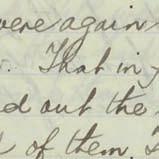 were again
. That in
d out the
of them.